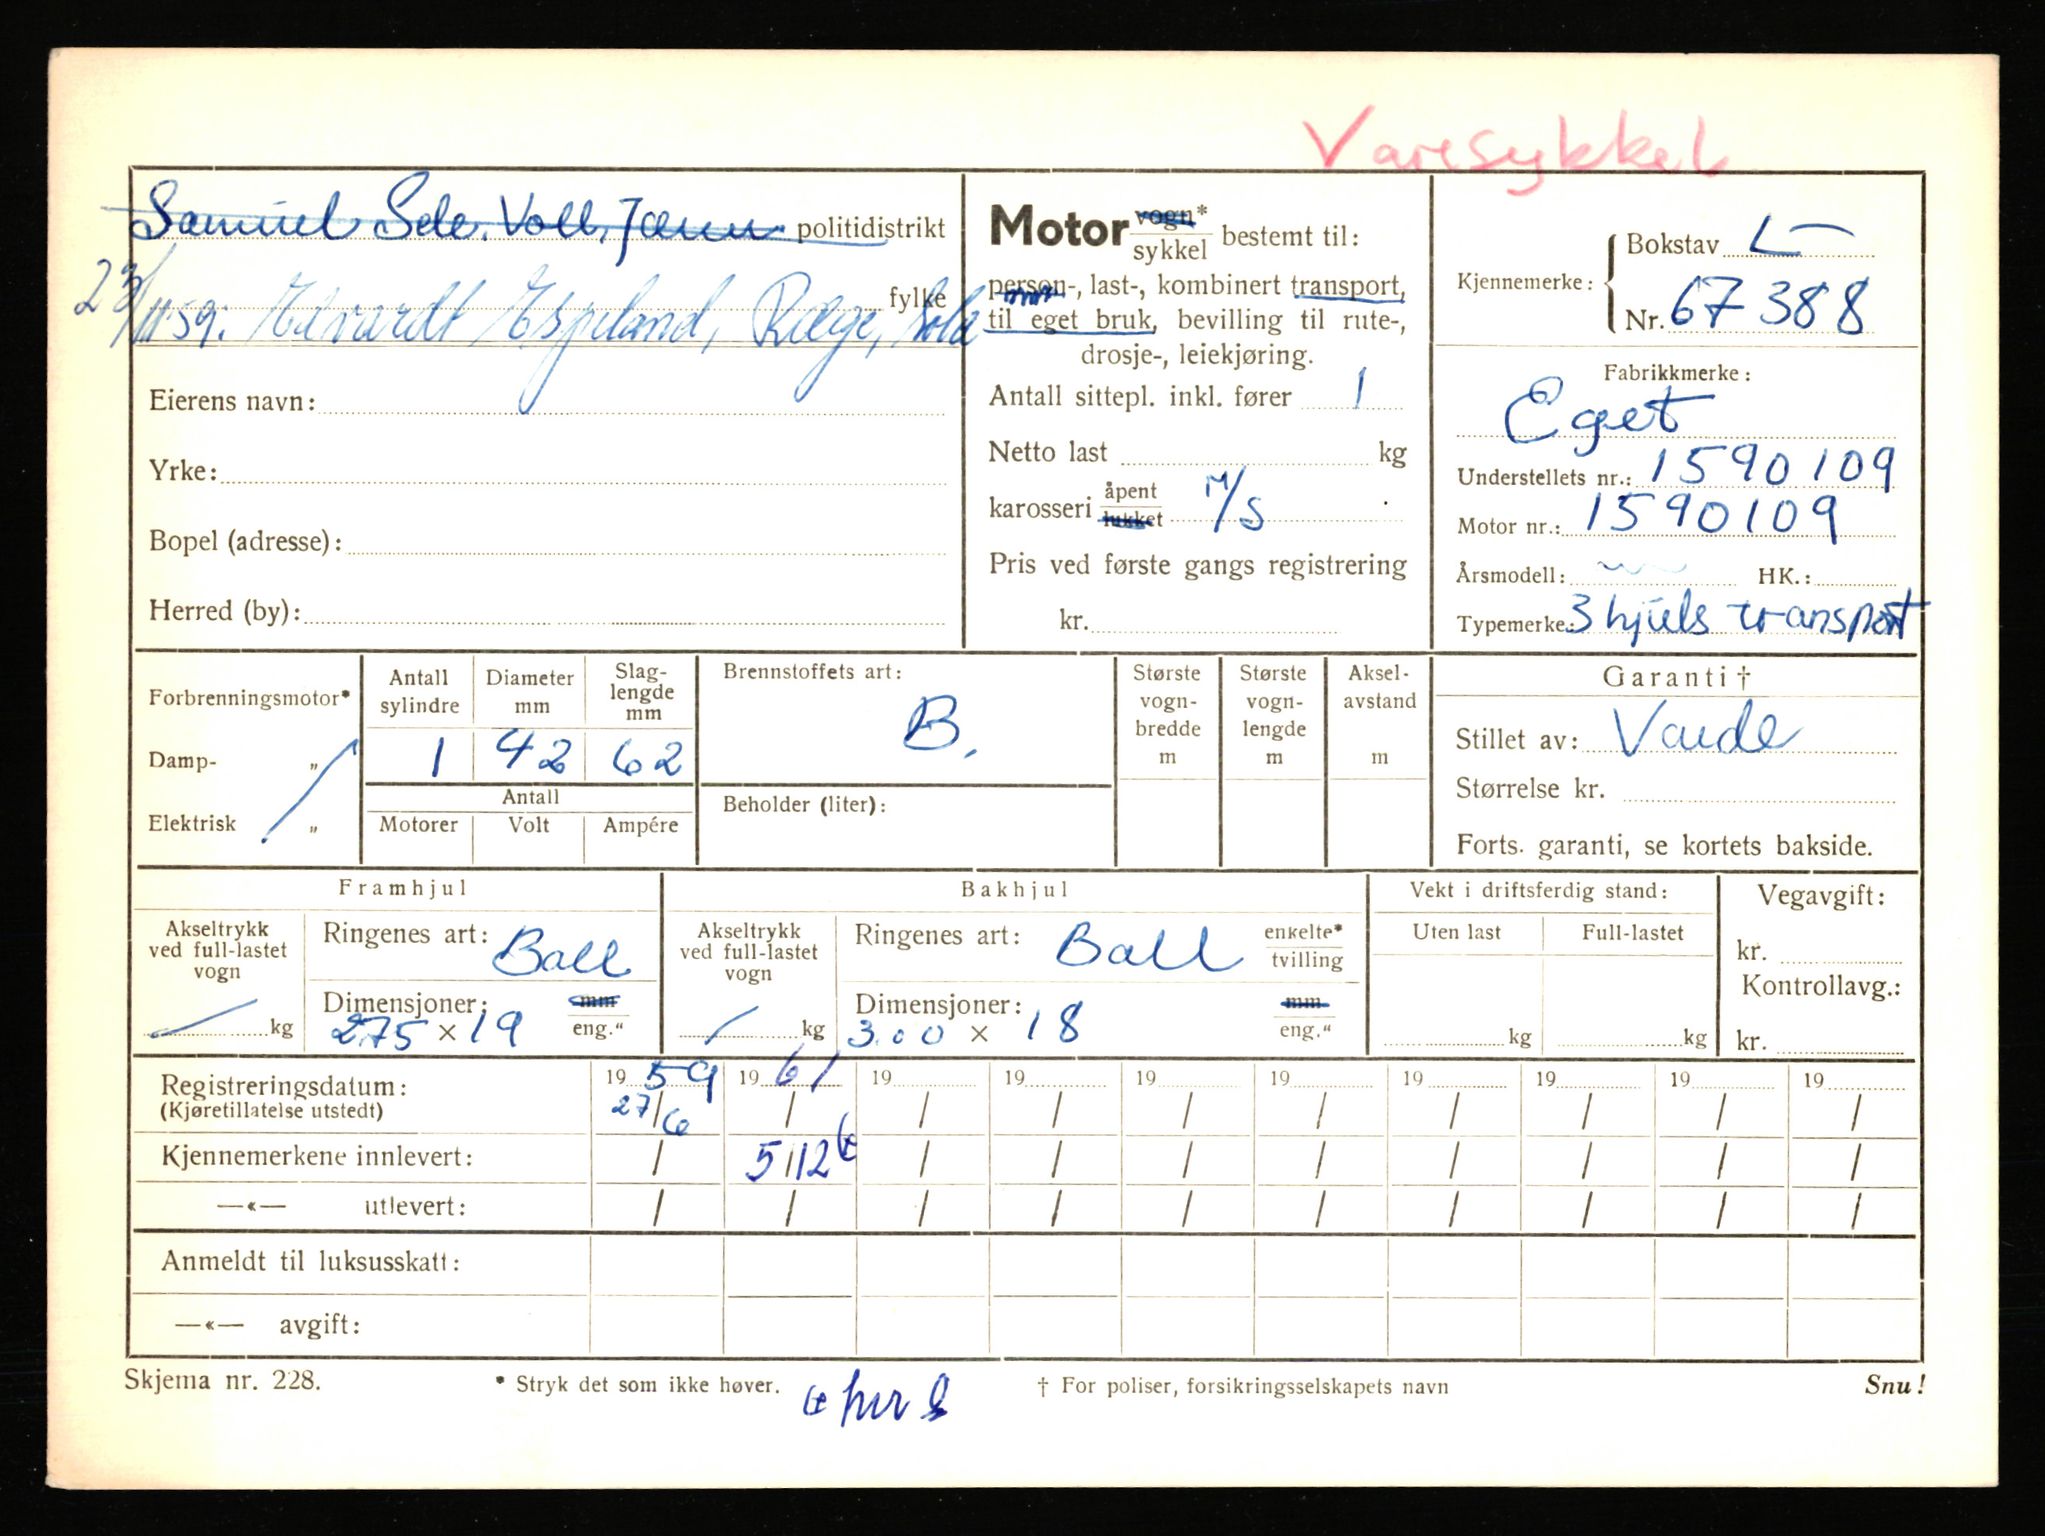 Varesykkel
Samuel Sele. Voll, Jæren. politidistrikt
23/11 59. Edvardt Espeland, Ræge, Sola fylke
Eierens navn:
Yrke:
Bopel (adresse):
Herred (by):
Motor vogn* sykkel bestemt til:
person-, last-, kombinert transport,
til eget bruk, bevilling til rute-,
drosje-, leiekjøring.
Antall sittepl. inkl. fører 1
Netto last kg
karosseri åpent lukket M/S
Pris ved første gangs registrering
kr.
Kjennemerke: Bokstav L
Nr. 67388
Fabrikkmerke:
Eget
Understellets nr.: 1590109
Motor nr.: 1590109
Årsmodell: HK.:
Typemerke: 3 hjuls transport
Forbrenningsmotor*
Damp- „
Elektrisk „
Antall sylindre
Diameter mm
Slag-lengde mm
1 42 62
Antall
Motorer Volt Ampére
Brennstoffets art:
B.
Beholder (liter):
Største vogn-bredde m
Største vogn-lengde m
Aksel-avstand m
Garanti †
Stillet av:
Størrelse kr.
Forts. garanti, se kortets bakside.
Framhjul
Akseltrykk ved full-lastet vogn
kg
Ringenes art: Ball
Dimensjoner: mm
275 × 19 eng."
Bakhjul
Akseltrykk ved full-lastet vogn
kg
Ringenes art: Ball enkelte* tvilling
Dimensjoner: mm
3.00 × 18 eng."
Vekt i driftsferdig stand:
Uten last Full-lastet
kg kg
Vegavgift:
kr.
Kontrollavg.:
kr.
Registreringsdatum: 19 59 19 61 19 19 19 19 19 19 19 19
(Kjøretillatelse utstedt) 27/6 / / / / / / / / /
Kjennemerkene innlevert: / 5/12 / / / / / / / /
—«— utlevert: / / / / / / / / / /
Anmeldt til luksusskatt:
—«— avgift:
Skjema nr. 228.
* Stryk det som ikke høver.
† For poliser, forsikringsselskapets navn
Snu!